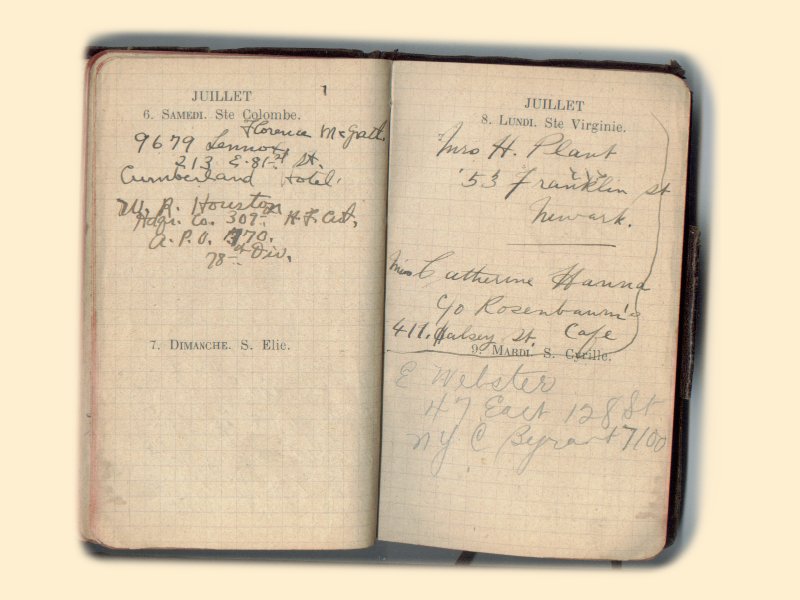 JUILLET 1
6. SAMEDI. Ste Colombe.
Florence McGrath.
9679 Lennox.
213 E. 81st St.
Cumberland Hotel.
W. R. Houston
Hdqr. Co. 307th H. F. Art,
A. P. O. 770.
78th Div.
7. DIMANCHE. S. Elie.
JUILLET
8. LUNDI. Ste Virginie.
Mrs H. Plant
53 Franklin st
Newark.
Miss Catherine Hanna
c/o Rosenbaum's
411. Halsey St. Cafe
9. MARDI. S. Cyrille.
E Webster
47 East 128 St
N Y C Byrant 7100